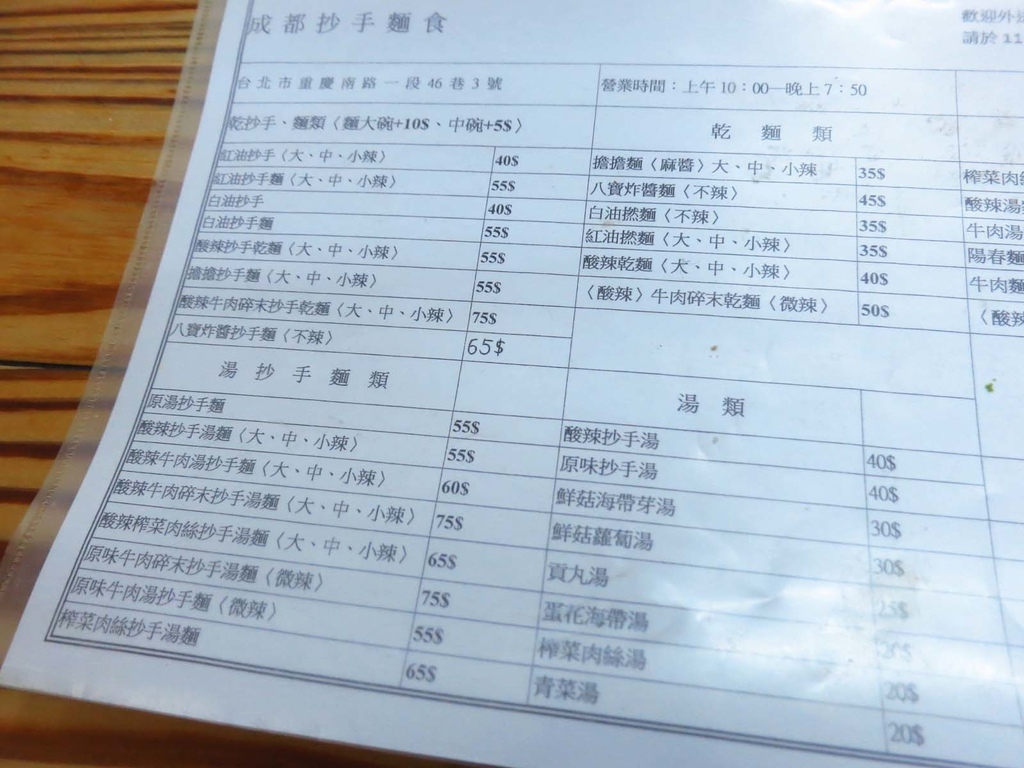 成都抄手麵食
歡迎外送
請於 11
台北市重慶南路一段 46 巷 3 號
營業時間：上午 10：00—晚上 7：50
乾抄手、麵類〈麵大碗+10$、中碗+5$〉
紅油抄手〈大、中、小辣〉 40$
紅油抄手麵〈大、中、小辣〉 55$
白油抄手 40$
白油抄手麵 55$
酸辣抄手乾麵〈大、中、小辣〉 55$
擔擔抄手麵〈大、中、小辣〉 55$
酸辣牛肉碎末抄手乾麵〈大、中、小辣〉 75$
八寶炸醬抄手麵〈不辣〉 65$
乾麵類
擔擔麵〈麻醬〉大、中、小辣 35$
八寶炸醬麵〈不辣〉 45$
白油撚麵〈不辣〉 35$
紅油撚麵〈大、中、小辣〉 35$
酸辣乾麵〈大、中、小辣〉 40$
〈酸辣〉牛肉碎末乾麵〈微辣〉 50$
榨菜肉絲
酸辣湯
牛肉湯
陽春麵
牛肉麵
〈酸辣
湯抄手麵類
原湯抄手麵 55$
酸辣抄手湯麵〈大、中、小辣〉 55$
酸辣牛肉湯抄手麵〈大、中、小辣〉 60$
酸辣牛肉碎末抄手湯麵〈大、中、小辣〉 75$
酸辣榨菜肉絲抄手湯麵〈大、中、小辣〉 65$
原味牛肉碎末抄手湯麵〈微辣〉 75$
原味牛肉湯抄手麵〈微辣〉 55$
榨菜肉絲抄手湯麵 65$
湯類
酸辣抄手湯 40$
原味抄手湯 40$
鮮菇海帶芽湯 30$
鮮菇蘿蔔湯 30$
貢丸湯 25$
蛋花海帶湯
榨菜肉絲湯 20$
青菜湯 20$